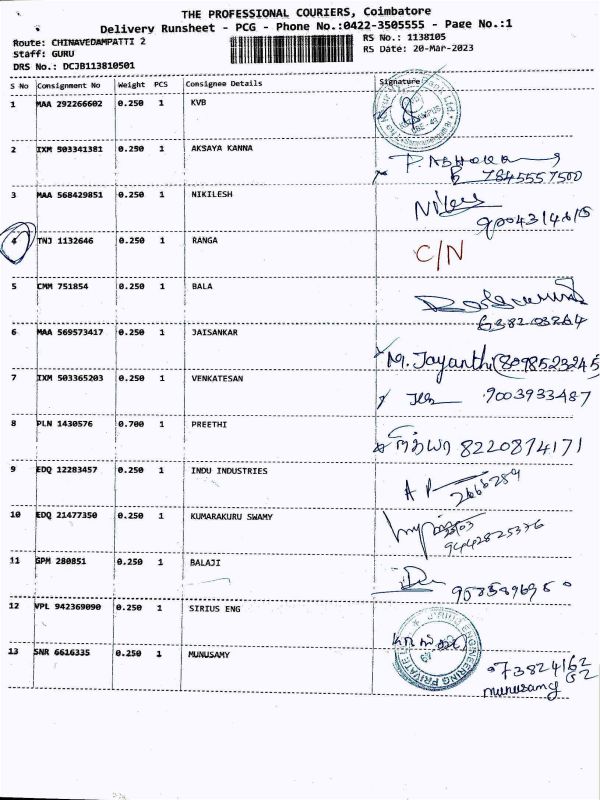 THE PROFESSIONAL COURIERS, Coimbatore
Delivery Runsheet - PCG - Phone No.:0422-3505555 - Page No.:1
Route: CHINAVEDAMPATTI 2
RS No.: 1138105
Staff: GURU
RS Date: 20-Mar-2023
DRS No.: DCJB113810501
S No Consignment No Weight PCS Consignee Details Signature
1 MAA 292266602 0.250 1 KVB
2 IXM 503341381 0.250 1 AKSAYA KANNA
7845557500
3 MAA 568429851 0.250 1 NIKILESH
4 TNJ 1132646 0.250 1 RANGA C/N
5 CMM 751854 0.250 1 BALA
6 MAA 569573417 0.250 1 JAISANKAR M. Jayanthi (8098523245)
7 IXM 503365203 0.250 1 VENKATESAN 9003933487
8 PLN 1430576 0.700 1 PREETHI 8220874171
9 EDQ 12283457 0.250 1 INDU INDUSTRIES
2666289
10 EDQ 21477350 0.250 1 KUMARAKURU SWAMY
9442825376
11 GPM 280851 0.250 1 BALAJI
12 VPL 942369090 0.250 1 SIRIUS ENG
13 SNR 6616335 0.250 1 MUNUSAMY
munusamy